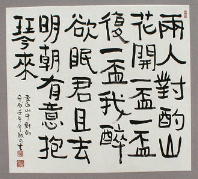 兩人對酌山
花開一盃一盃
復一盃我醉
欲眠君且去
明朝有意抱
琴來